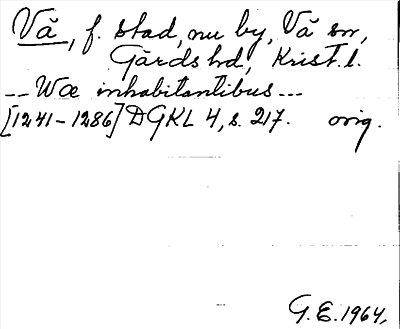 Vä, f. stad, nu by, Vä sn,
Gärds hd, Krist. l.
-- Wæ inhabitantibus ---
[1241-1286] DGKL 4, s. 217. orig.
G.E. 1964,